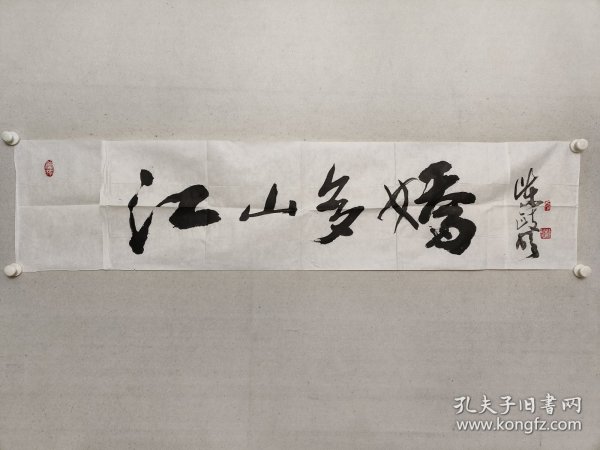 江山多娇
孔夫子旧書网
www.kongfz.com